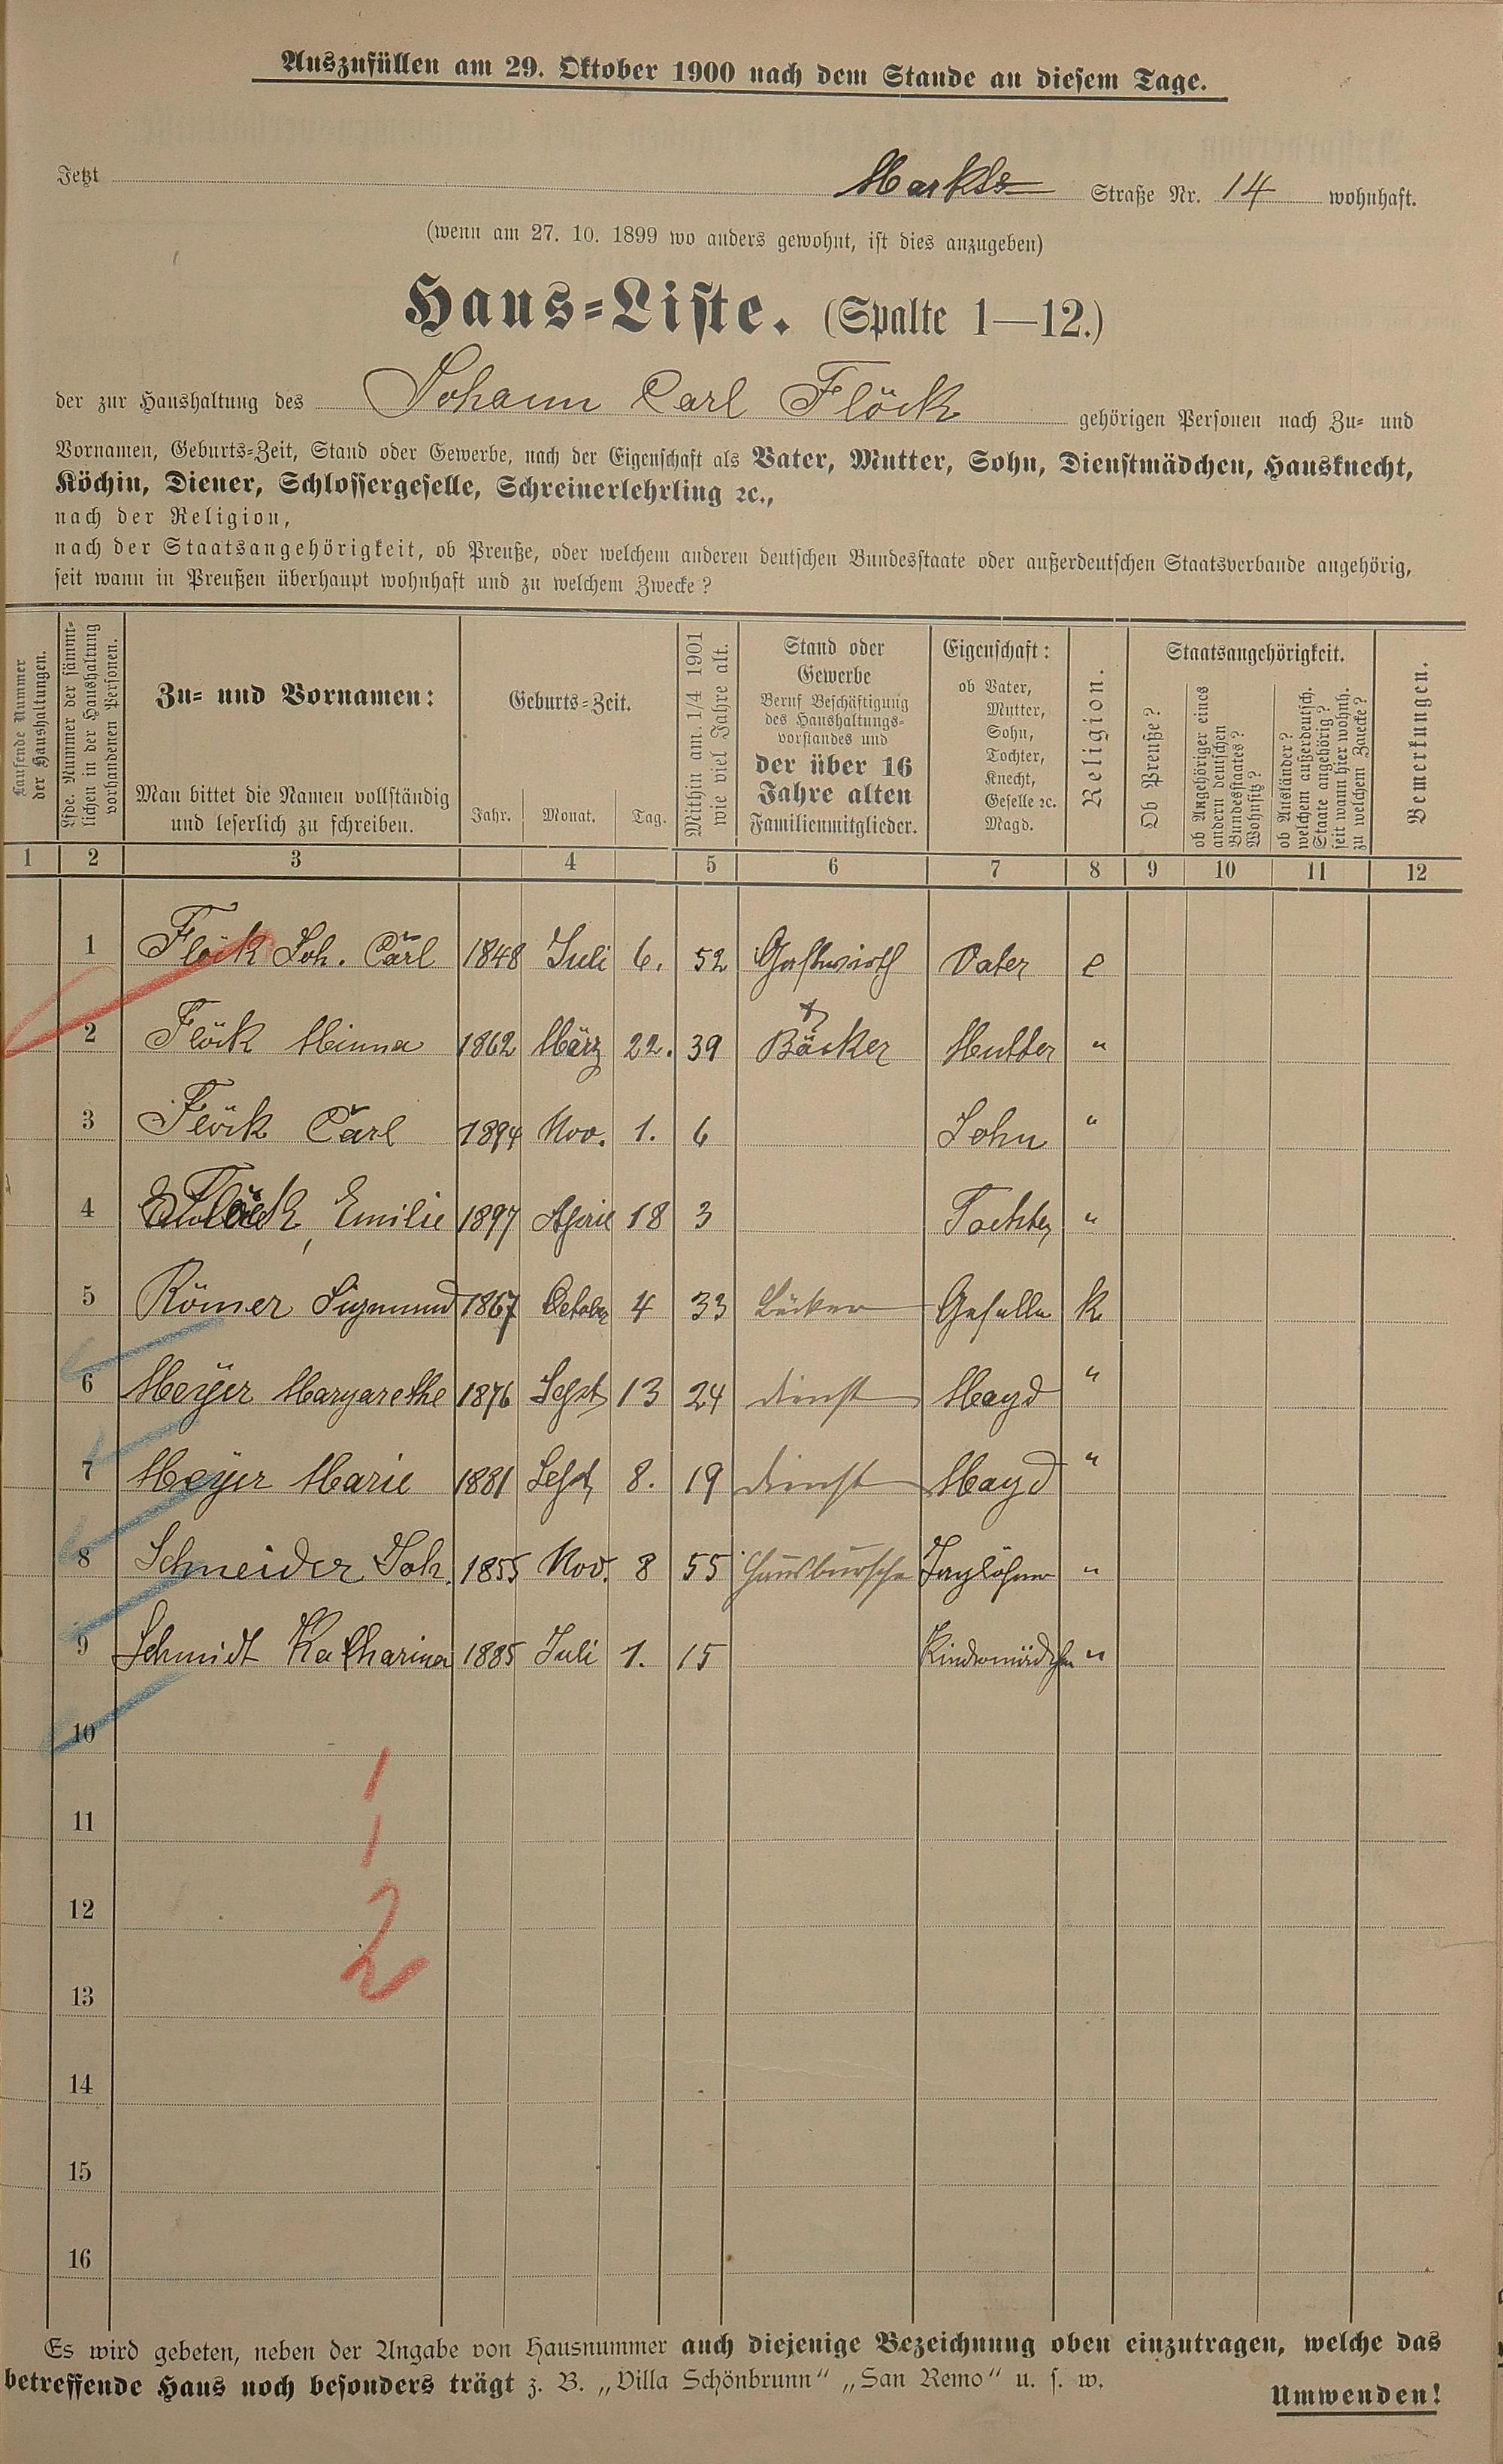 Auszufüllen am 29. Oktober 1900 nach dem Stande an diesem Tage.
Jetzt Markts Straße Nr. 14 wohnhaft.
(wenn am 27. 10. 1899 wo anders gewohnt, ist dies anzugeben)
Haus-Liste. (Spalte 1—12.)
der zur Haushaltung des Johann Carl Flöck gehörigen Personen nach Zu- und
Vornamen, Geburts-Zeit, Stand oder Gewerbe, nach der Eigenschaft als Vater, Mutter, Sohn, Dienstmädchen, Hausknecht,
Köchin, Diener, Schlossergeselle, Schreinerlehrling ꝛc.,
nach der Religion,
nach der Staatsangehörigkeit, ob Preuße, oder welchem anderen deutschen Bundesstaate oder außerdeutschen Staatsverbande angehörig,
seit wann in Preußen überhaupt wohnhaft und zu welchem Zwecke?
Laufende Nummer
der Haushaltungen.
Lfde. Nummer der sämmt-
lichen in der Haushaltung
vorhandenen Personen.
Zu- und Vornamen:
Man bittet die Namen vollständig
und leserlich zu schreiben.
Geburts-Zeit.
Jahr. Monat. Tag.
Mithin am 1/4 1901
wie viel Jahre alt.
Stand oder
Gewerbe
Beruf Beschäftigung
des Haushaltungs-
vorstandes und
der über 16
Jahre alten
Familienmitglieder.
Eigenschaft:
ob Vater,
Mutter,
Sohn,
Tochter,
Knecht,
Geselle ꝛc.
Magd.
Religion.
Staatsangehörigkeit.
Ob Preuße?
ob Angehöriger eines
andern deutschen
Bundesstaates?
Wohnsitz?
ob Ausländer?
welchem außerdeutsch.
Staate angehörig?
seit wann hier wohnh.
zu welchem Zwecke?
Bemerkungen.
1 2 3 4 5 6 7 8 9 10 11 12
1 Flöck Joh. Carl 1848 Juli 6. 52 Gastwirth Vater e
2 Flöck Minna 1862 März 22. 39 Bäcker Mutter "
3 Flöck Carl 1894 Nov. 1. 6 Sohn "
4 Flöck, Emilie 1897 April 18 3 Tochter "
5 Römer Sigmund 1867 October 4 33 Bäcker Geselle k
6 Meyer Margarethe 1876 Sept 13 24 dienst Magd "
7 Meyer Marie 1881 Sept 8. 19 dienst Magd "
8 Schneider Joh. 1855 Nov. 8 55 Hausbursche Taglöhner "
9 Schmidt Katharina 1885 Juli 1. 15 Kindermädchen "
10
1
11
1
12
2
13
14
15
16
Es wird gebeten, neben der Angabe von Hausnummer auch diejenige Bezeichnung oben einzutragen, welche das
betreffende Haus noch besonders trägt z. B. „Villa Schönbrunn" „San Remo" u. s. w.
Umwenden!